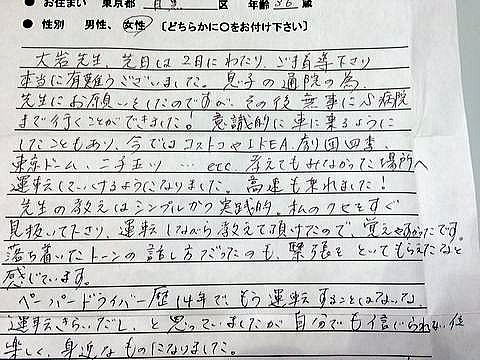 ● お住まい 東京都 目黒 区 年齢 36 歳
● 性別 男性、女性 (どちらかに〇をお付け下さい)
大岩先生、先日は2日にわたり、ご指導下さり
本当に有難うございました。息子の通院の為、
先生にお願いをしたのですが、その後 無事に 病院
まで行くことができました! 意識的に車に乗るように
したこともあり、今ではコストコやIKEA、劇団四季、
東京ドーム、二子玉川 … etc. 考えてもみなかった場所へ
運転していけるようになりました。高速も乗れました!
先生の教えはシンプルかつ実践的。私のクセをすぐ
見抜いて下さり、運転しながら教えて頂けたので、覚えやすかったです。
落ち着いたトーンの話し方だったのも、緊張をといてもらえたなと
感じています。
ペーパードライバー歴14年で、もう運転することはないな、
運転きらいだし、と思っていましたが自分でも信じられない位
楽しく、身近なものになりました。